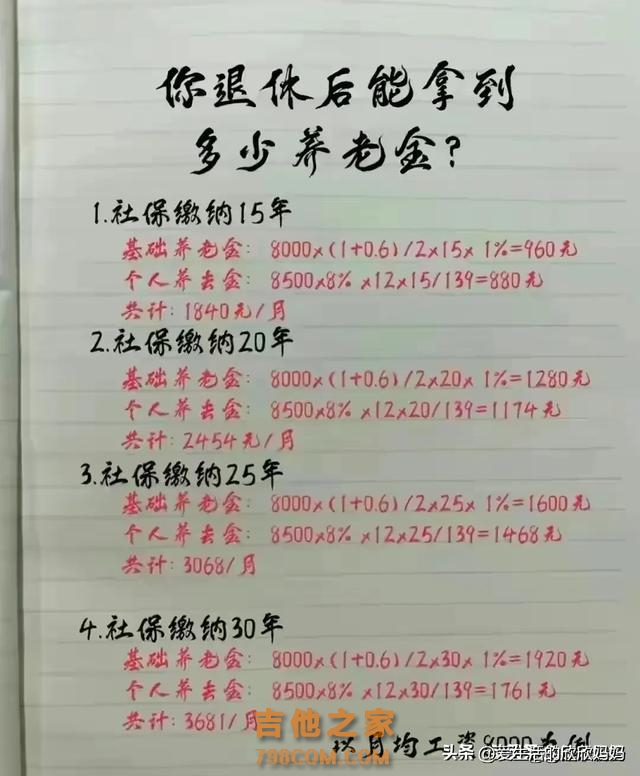 你退休后能拿到
多少养老金?
1.社保缴纳15年
基础养老金: 8000×(1+0.6)/2×15×1%=960元
个人养去金: 8500×8% ×12×15/139=880元
共计: 1840元/月
2.社保缴纳20年
基础养老金: 8000×(1+0.6)/2×20×1%=1280元
个人养去金: 8500×8% ×12×20/139=1174元
共计: 2454元/月
3.社保缴纳25年
基础养老金: 8000×(1+0.6)/2×25×1%=1600元
个人养去金: 8500×8% ×12×25/139=1468元
共计: 3068/月
4.社保缴纳30年
基础养老金: 8000×(1+0.6)/2×30×1%=1920元
个人养去金: 8500×8% ×12×30/139=1761元
共计: 3681/月
吉他之家
798COM.COM
以月均工资8000为例
头条 @爱生活的欣欣妈妈